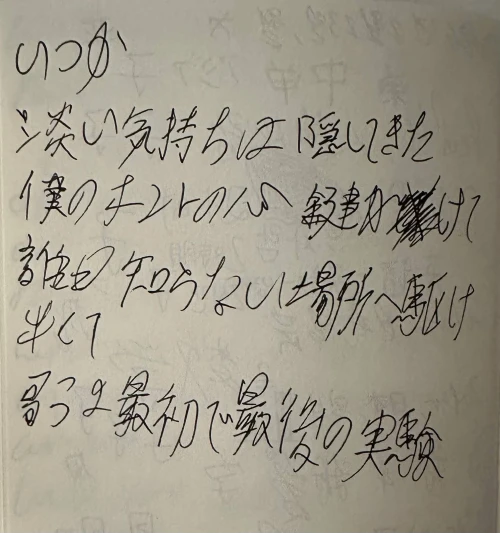 いつか
淡い気持ちは隠してきた
僕のホントの心 鍵をかけて
誰も知らない場所へ駆け
最初で最後の実験